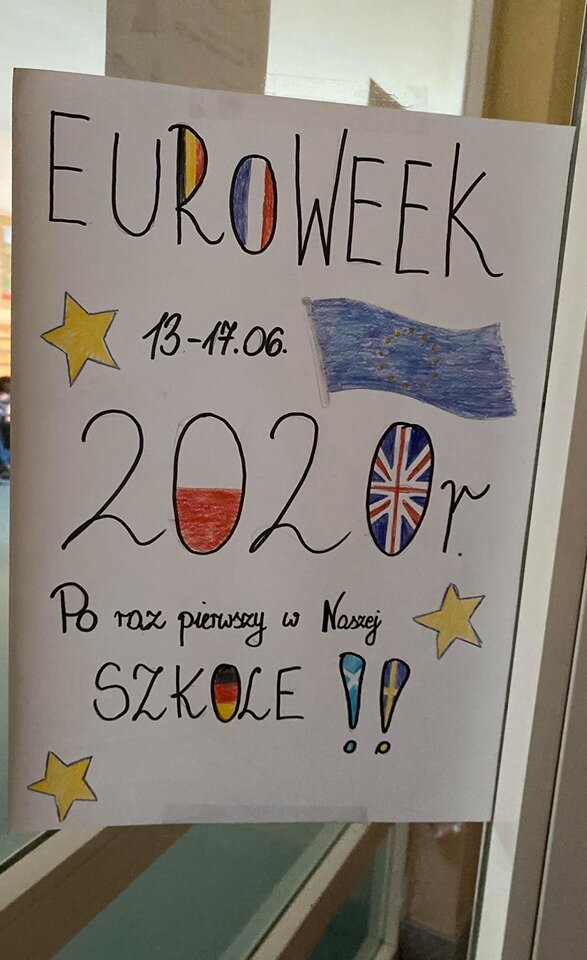 EUROWEEK
13-17.06.
2020r.
Po raz pierwszy w Naszej
SZKOLE !!